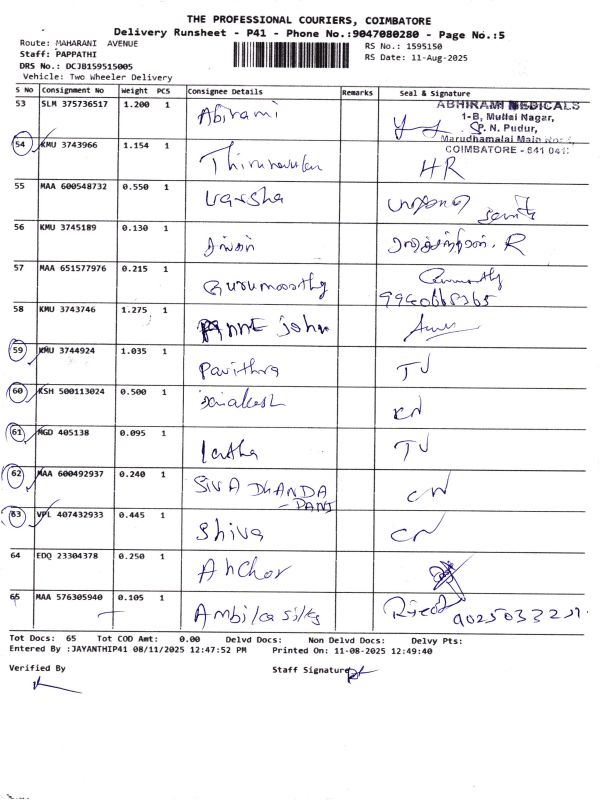 THE PROFESSIONAL COURIERS, COIMBATORE
Delivery Runsheet - P41 - Phone No.:9047080280 - Page No.:5
Route: MAHARANI AVENUE
RS No.: 1595150
Staff: PAPPATHI
RS Date: 11-Aug-2025
DRS No.: DCJB159515005
Vehicle: Two Wheeler Delivery
S No Consignment No Weight PCS Consignee Details Remarks Seal & Signature
53 SLM 375736517 1.200 1 Abirami
ABHIRAMI MEDICALS
1-B, Mullai Nagar,
P. N. Pudur,
Marudhamalai Main Road,
COIMBATORE - 641 041
54 KMU 3743966 1.154 1 HR
55 MAA 600548732 0.550 1 Varsha
56 KMU 3745189 0.130 1
57 MAA 651577976 0.215 1 Gurumoorthy
58 KMU 3743746 1.275 1 Anne John
59 KMU 3744924 1.035 1 Pavithra
60 KSH 500113024 0.500 1
61 MGD 405138 0.095 1 latha
62 MAA 600492937 0.240 1 SIVA DHANDA
- PANI
63 VPL 407432933 0.445 1 Shiva
64 EDQ 23304378 0.250 1 Anchor
65 MAA 576305940 0.105 1 Ambika silks
Tot Docs: 65 Tot COD Amt: 0.00 Delvd Docs: Non Delvd Docs: Delvy Pts:
Entered By :JAYANTHIP41 08/11/2025 12:47:52 PM Printed On: 11-08-2025 12:49:40
Verified By Staff Signature